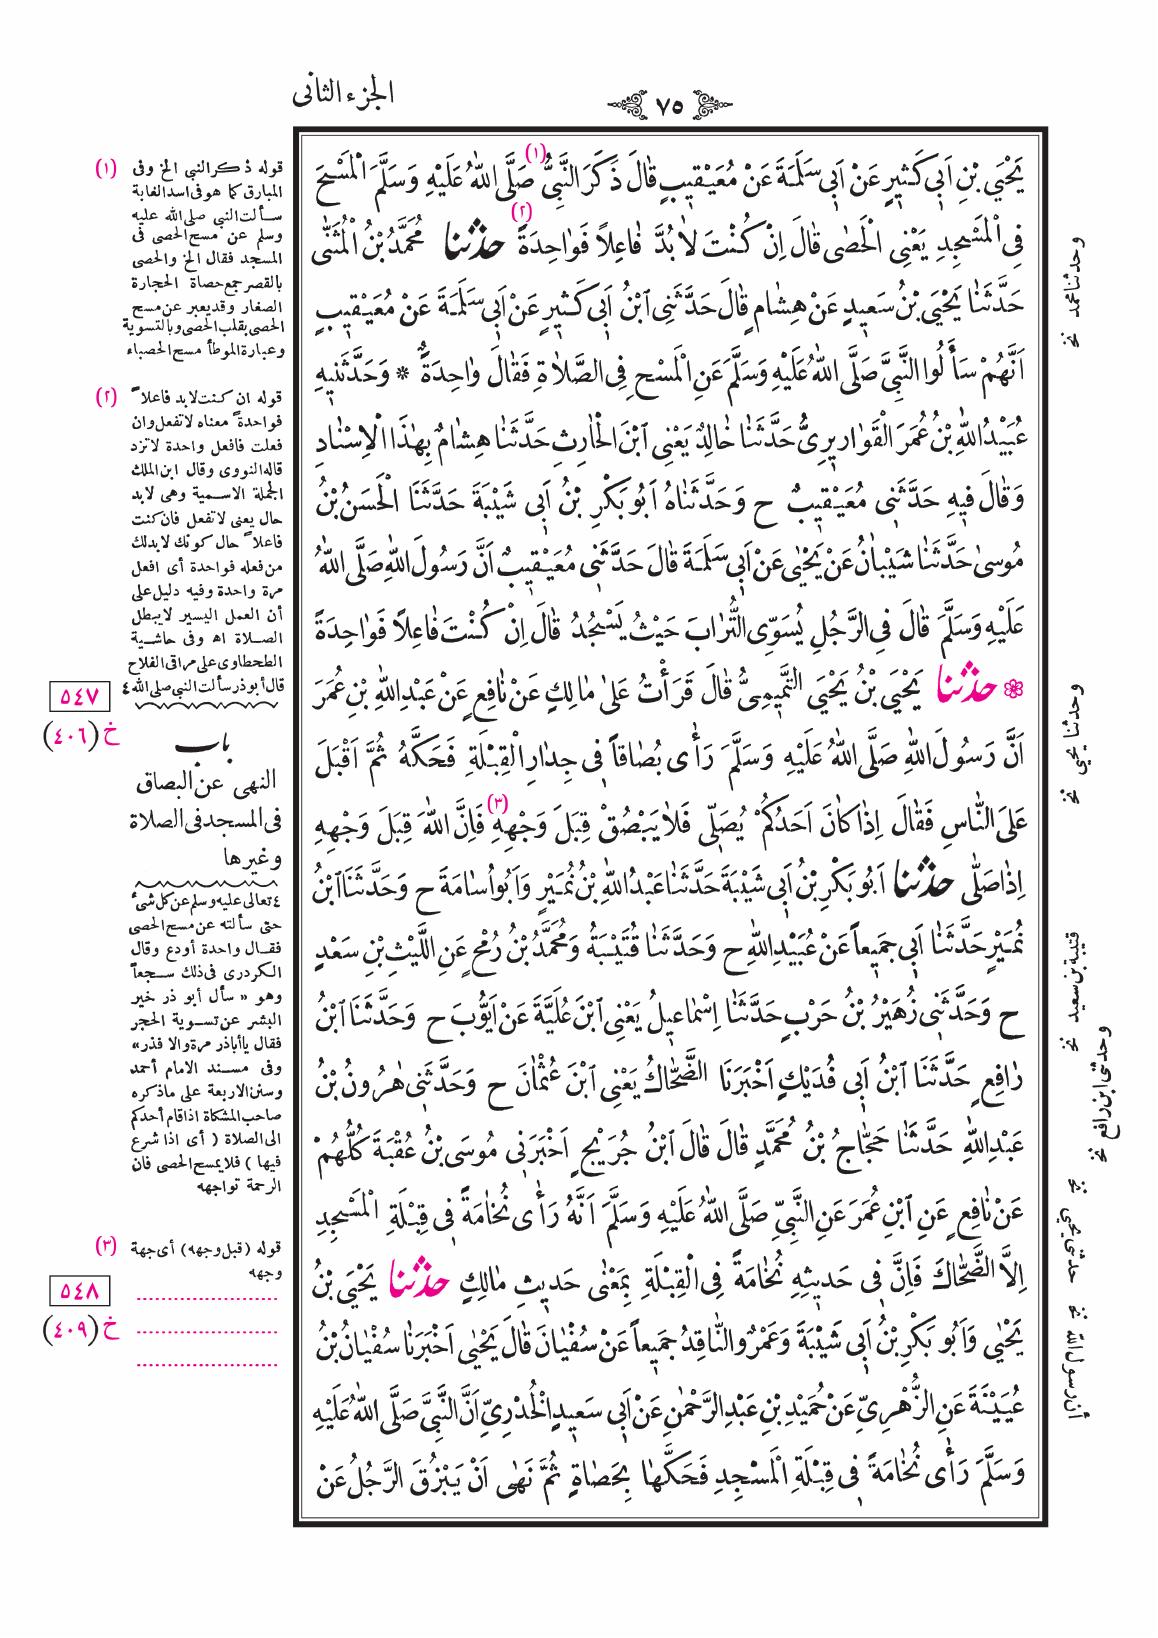 ٧٥
الجزء الثانى
يَحْيَى بْنِ اَبى كَثيرٍ عَنْ اَبى سَلَمَةَ عَنْ مُعَيْقيبٍ قٰالَ ذَكَرَ النَّبِىُّ (١) صَلَّى اللّٰهُ عَلَيْهِ وَسَلَّمَ الْمَسْحَ
فِى الْمَسْجِدِ يَعْنِى الْحَصٰى قٰالَ اِنْ كُنْتَ لاٰ بُدَّ فٰاعِلاً فَوٰاحِدَةً (٢) حدّثنا مُحَمَّدُ بْنُ الْمُثَنّٰى
حَدَّثَنٰا يَحْيَى بْنُ سَعيدٍ عَنْ هِشٰامٍ قٰالَ حَدَّثَنِى ابْنُ اَبى كَثيرٍ عَنْ اَبى سَلَمَةَ عَنْ مُعَيْقيبٍ
اَنَّهُمْ سَأَلُوا النَّبِىَّ صَلَّى اللّٰهُ عَلَيْهِ وَسَلَّمَ عَنِ الْمَسْحِ فِى الصَّلاٰةِ فَقٰالَ وٰاحِدَةٌ * وَحَدَّثَنيهِ
عُبَيْدُ اللّٰهِ بْنُ عُمَرَ الْقَوٰاريرِىُّ حَدَّثَنٰا خٰالِدٌ يَعْنِى ابْنَ الْحٰارِثِ حَدَّثَنٰا هِشٰامٌ بِهٰذَا الْاِسْنٰادِ
وَقٰالَ فيهِ حَدَّثَنى مُعَيْقيبٌ ح وَحَدَّثَنٰاهُ اَبُو بَكْرِ بْنُ اَبى شَيْبَةَ حَدَّثَنَا الْحَسَنُ بْنُ
مُوسىٰ حَدَّثَنٰا شَيْبٰانُ عَنْ يَحْيٰى عَنْ اَبى سَلَمَةَ قٰالَ حَدَّثَنى مُعَيْقيبٌ اَنَّ رَسُولَ اللّٰهِ صَلَّى اللّٰهُ
عَلَيْهِ وَسَلَّمَ قٰالَ فِى الرَّجُلِ يُسَوِّى التُّرٰابَ حَيْثُ يَسْجُدُ قٰالَ اِنْ كُنْتَ فٰاعِلاً فَوٰاحِدَةً
حدّثنا يَحْيَى بْنُ يَحْيَى التَّميمِىُّ قٰالَ قَرَأْتُ عَلىٰ مٰالِكٍ عَنْ نٰافِعٍ عَنْ عَبْدِ اللّٰهِ بْنِ عُمَرَ
اَنَّ رَسُولَ اللّٰهِ صَلَّى اللّٰهُ عَلَيْهِ وَسَلَّمَ رَأٰى بُصٰاقاً فى جِدٰارِ الْقِبْلَةِ فَحَكَّهُ ثُمَّ اَقْبَلَ
عَلَى النّٰاسِ فَقٰالَ اِذٰا كٰانَ اَحَدُكُمْ يُصَلّى فَلاٰ يَبْصُقْ قِبَلَ وَجْهِهِ (٣) فَاِنَّ اللّٰهَ قِبَلَ وَجْهِهِ
اِذٰا صَلّٰى حدّثنا اَبُو بَكْرِ بْنُ اَبى شَيْبَةَ حَدَّثَنٰا عَبْدُ اللّٰهِ بْنُ نُمَيْرٍ وَاَبُو اُسٰامَةَ ح وَحَدَّثَنَا ابْنُ
نُمَيْرٍ حَدَّثَنٰا اَبى جَميعاً عَنْ عُبَيْدِ اللّٰهِ ح وَحَدَّثَنٰا قُتَيْبَةُ وَمُحَمَّدُ بْنُ رُمْحٍ عَنِ اللَّيْثِ بْنِ سَعْدٍ
ح وَحَدَّثَنى زُهَيْرُ بْنُ حَرْبٍ حَدَّثَنٰا اِسْمٰاعيلُ يَعْنِى ابْنَ عُلَيَّةَ عَنْ اَيُّوبَ ح وَحَدَّثَنَا ابْنُ
رٰافِعٍ حَدَّثَنَا ابْنُ اَبى فُدَيْكٍ اَخْبَرَنَا الضَّحّٰاكُ يَعْنِى ابْنَ عُثْمٰانَ ح وَحَدَّثَنى هٰرُونُ بْنُ
عَبْدِ اللّٰهِ حَدَّثَنٰا حَجّٰاجُ بْنُ مُحَمَّدٍ قٰالَ قٰالَ ابْنُ جُرَيْجٍ اَخْبَرَنى مُوسَى بْنُ عُقْبَةَ كُلُّهُمْ
عَنْ نٰافِعٍ عَنِ ابْنِ عُمَرَ عَنِ النَّبِىِّ صَلَّى اللّٰهُ عَلَيْهِ وَسَلَّمَ اَنَّهُ رَأٰى نُخٰامَةً فى قِبْلَةِ الْمَسْجِدِ
اِلاَّ الضَّحّٰاكَ فَاِنَّ فى حَديثِهِ نُخٰامَةً فِى الْقِبْلَةِ بِمَعْنٰى حَديثِ مٰالِكٍ حدّثنا يَحْيَى بْنُ
يَحْيٰى وَاَبُو بَكْرِ بْنُ اَبى شَيْبَةَ وَعَمْرٌو النّٰاقِدُ جَميعاً عَنْ سُفْيٰانَ قٰالَ يَحْيٰى اَخْبَرَنٰا سُفْيٰانُ بْنُ
عُيَيْنَةَ عَنِ الزُّهْرِىِّ عَنْ حُمَيْدِ بْنِ عَبْدِ الرَّحْمٰنِ عَنْ اَبى سَعيدٍ الْخُدْرِىِّ اَنَّ النَّبِىَّ صَلَّى اللّٰهُ عَلَيْهِ
وَسَلَّمَ رَأٰى نُخٰامَةً فى قِبْلَةِ الْمَسْجِدِ فَحَكَّهٰا بِحَصٰاةٍ ثُمَّ نَهٰى اَنْ يَبْزُقَ الرَّجُلُ عَنْ
وحدثنا محمد نخ
وحدثنا يحيى نخ
قتيبة بن سعيد نخ
وحدثنى ابن رافع نخ
حدثنى يحيى نخ
أن رسول الله نخ
(١) قوله ذكر النبى الخ وفى
المبارق كما هو فى اسد الغابة
سألت النبى صلى الله عليه
وسلم عن مسح الحصى فى
المسجد فقال الخ والحصى
بالقصر جمع حصاة الحجارة
الصغار وقد يعبر عن مسح
الحصى بقلب الحصى وبالتسوية
وعبارة الموطأ مسح الحصباء
(٢) قوله ان كنت لا بد فاعلاً
فواحدةً معناه لا تفعل وان
فعلت فافعل واحدة لا تزد
قاله النووى وقال ابن الملك
الجملة الاسمية وهى لابد
حال يعنى لا تفعل فان كنت
فاعلاً حال كونك لا بد لك
من فعله فواحدة أى افعل
مرة واحدة وفيه دليل على
أن العمل اليسير لا يبطل
الصلاة اه وفى حاشية
الطحطاوى على مراقى الفلاح
قال أبو ذر سألت النبى صلى الله ٤
٥٤٧
خ (٤٠٦)
باب
النهى عن البصاق
فى المسجد فى الصلاة
وغيرها
٤ تعالى عليه وسلم عن كل شئ
حتى سألته عن مسح الحصى
فقال واحدة أودع وقال
الكردرى فى ذلك سجعاً
وهو « سأل أبو ذر خير
البشر عن تسوية الحجر
فقال يا أباذر مرة والا فذر»
وفى مسند الامام أحمد
وسنن الاربعة على ما ذكره
صاحب المشكاة اذا قام أحدكم
الى الصلاة ( أى اذا شرع
فيها ) فلا يمسح الحصى فان
الرحمة تواجهه
(٣) قوله (قبل وجهه) أى جهة
وجهه
٥٤٨
خ (٤٠٩)